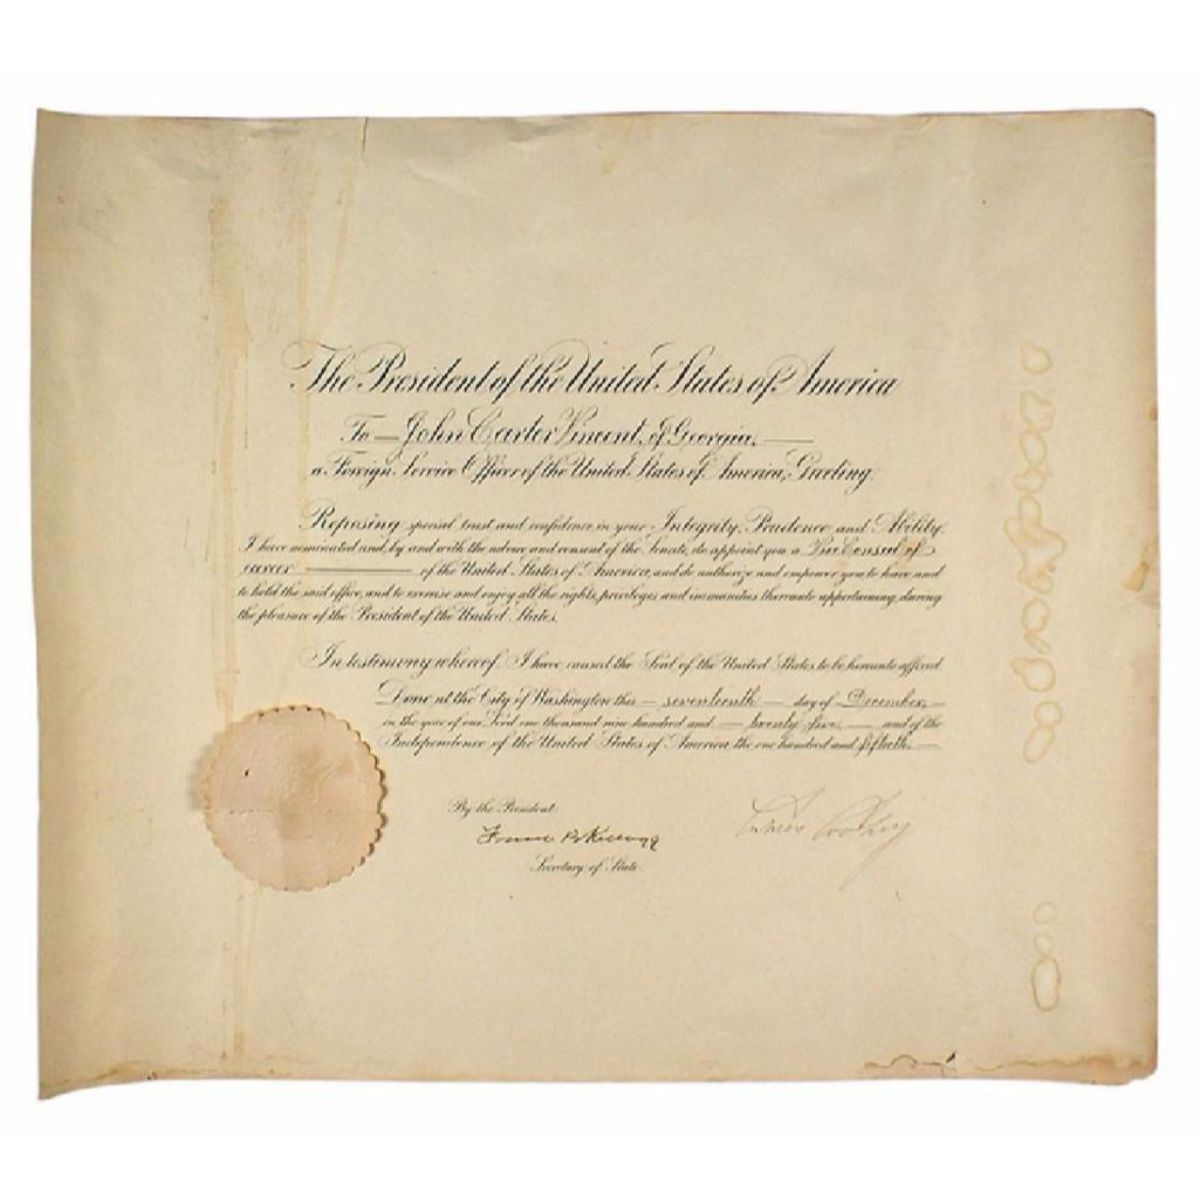 The President of the United States of America
To — John Carter Vincent, of Georgia, —
a Foreign Service Officer of the United States of America, Greeting:
Reposing special trust and confidence in your Integrity, Prudence and Ability
I have nominated and, by and with the advice and consent of the Senate, do appoint you a Vice Consul of
career — of the United States of America, and do authorize and empower you to have and
to hold the said office, and to exercise and enjoy all the rights, privileges and immunities thereunto appertaining, during
the pleasure of the President of the United States.
In testimony whereof, I have caused the Seal of the United States to be hereunto affixed.
Done at the City of Washington this — seventeenth — day of — December, —
in the year of our Lord one thousand nine hundred and — twenty five, — and of the
Independence of the United States of America the one hundred and fiftieth. —
By the President:
Frank B Kellogg
Calvin Coolidge
Secretary of State.